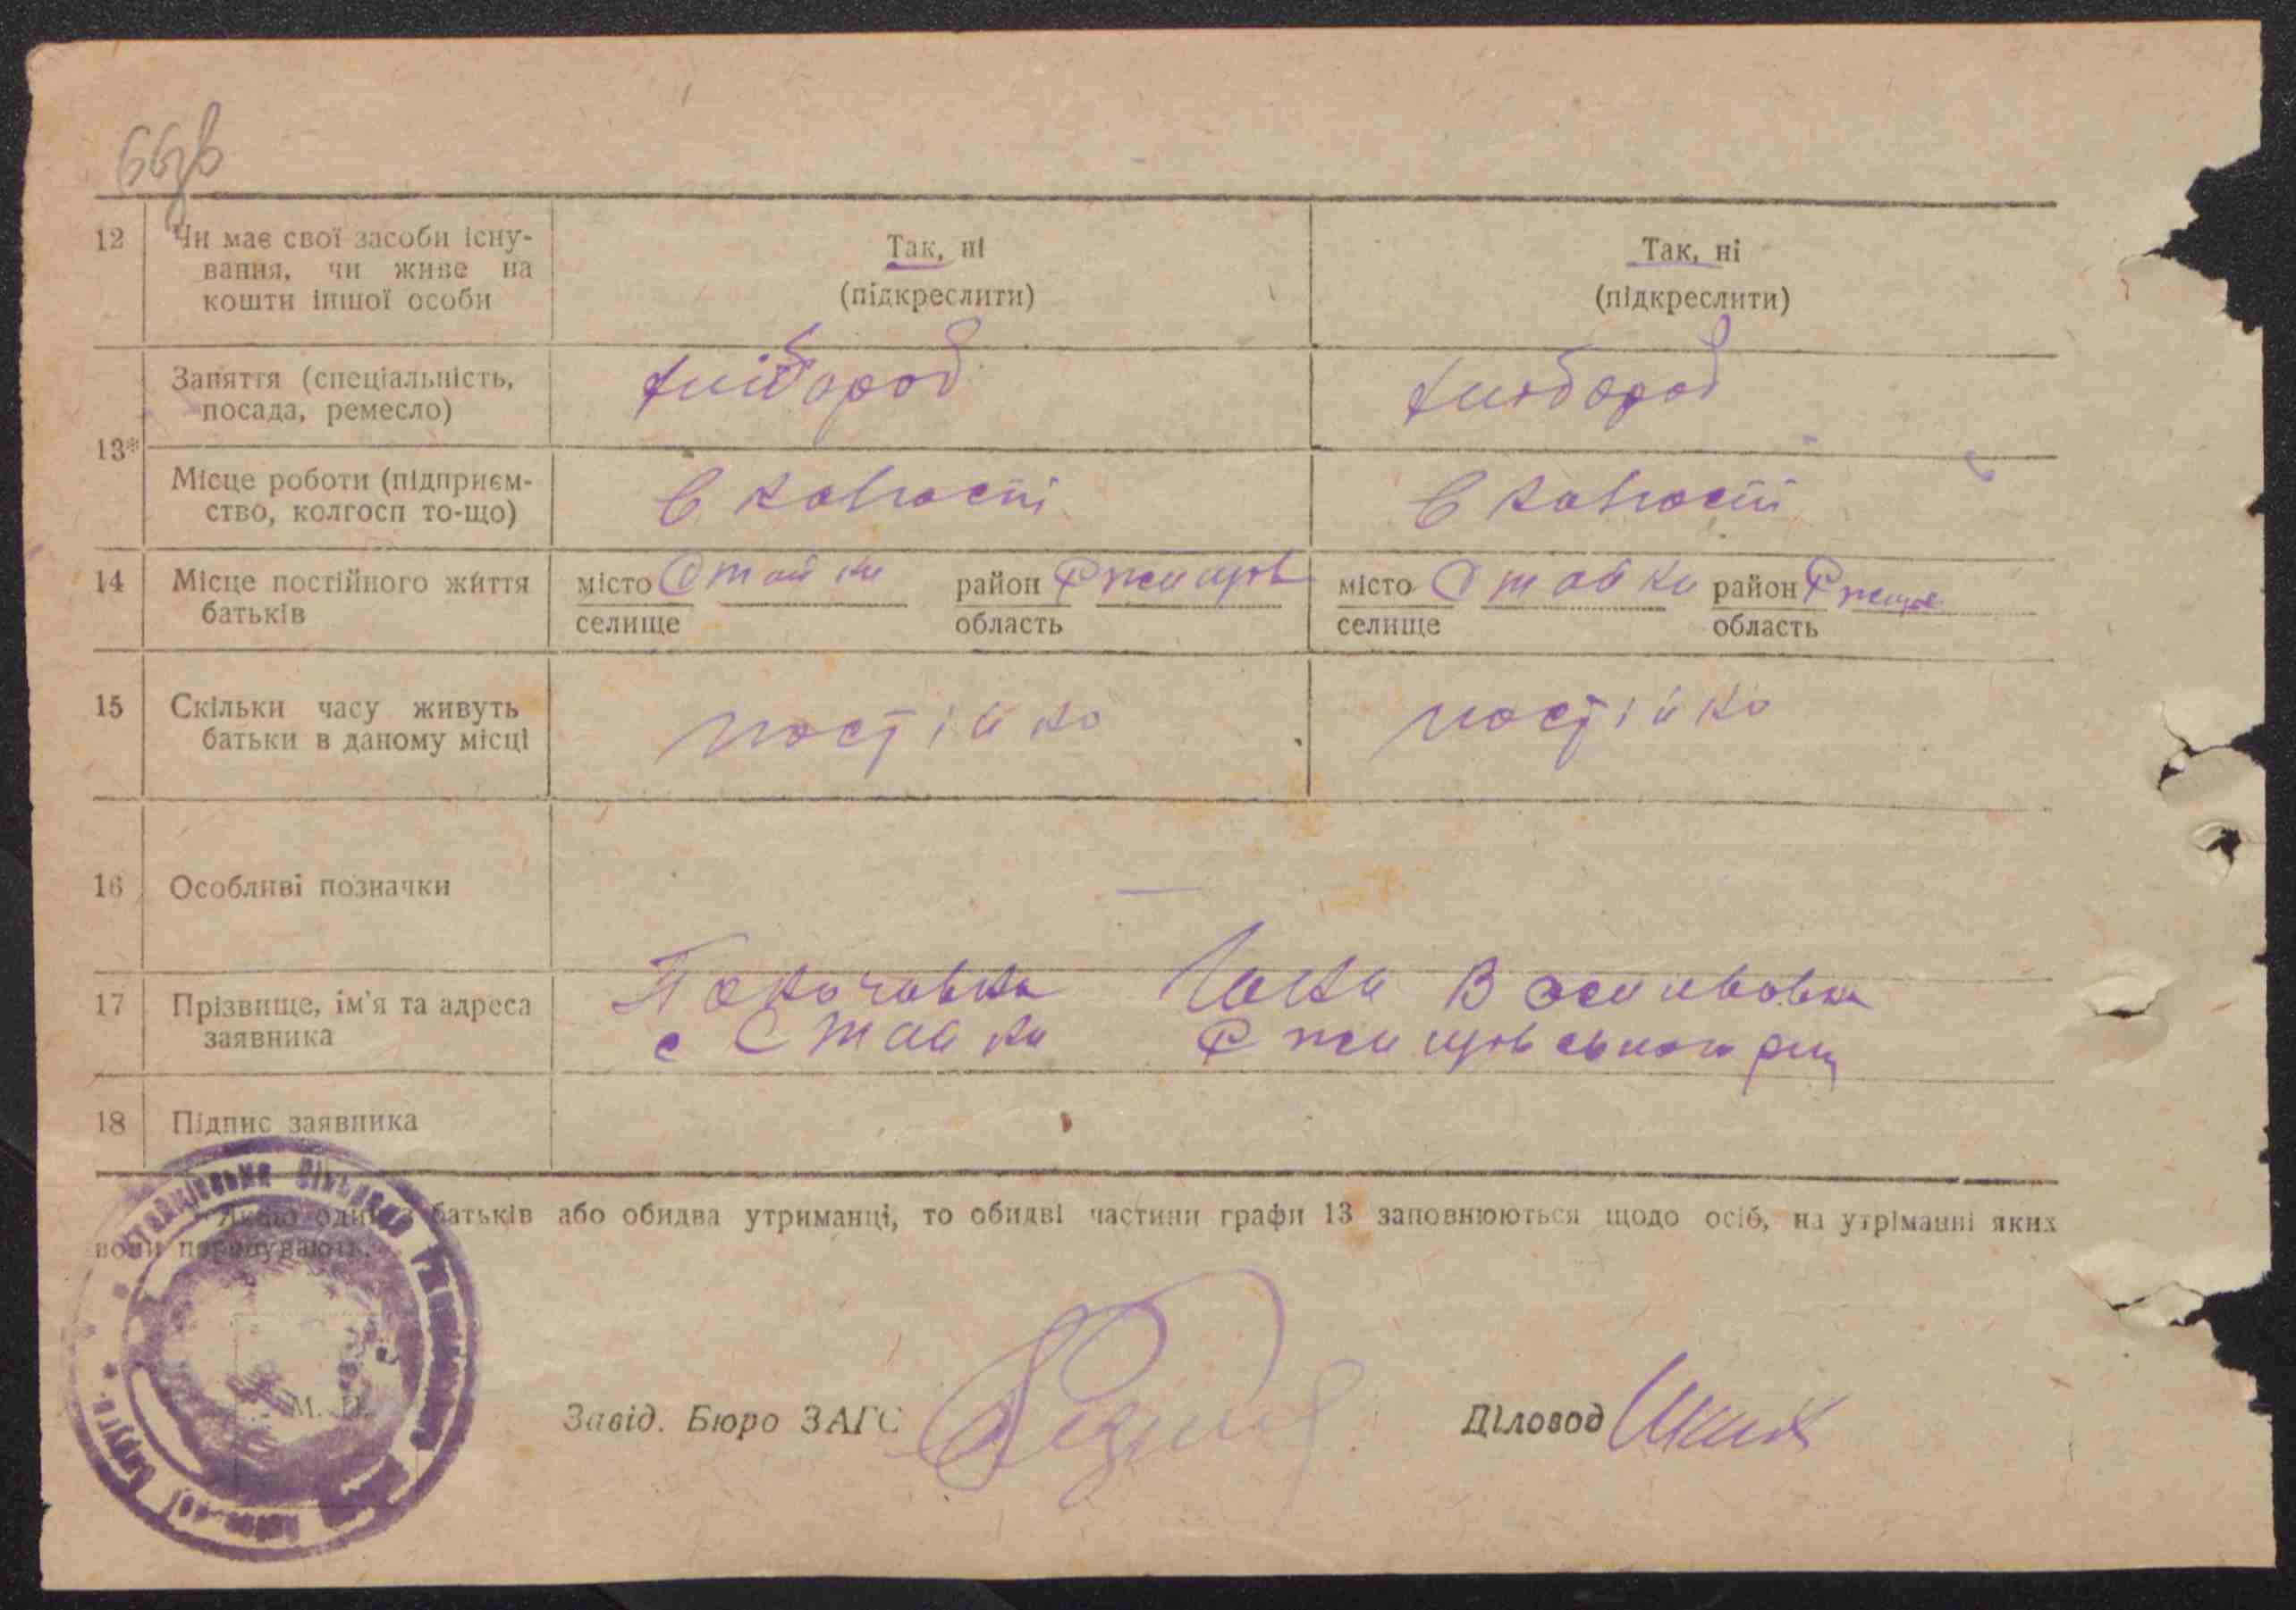 66зв
12 Чи має свої засоби існу- Так, ні Так, ні
вання, чи живе на (підкреслити) (підкреслити)
кошти іншої особи
Заняття (спеціальність, хлібороб хлібороб
посада, ремесло)
13*
Місце роботи (підприєм- В колгоспі В колгоспі
ство, колгосп то-що)
14 Місце постійного життя місто Стайки район Ржищів місто Стайки район Ржищів
батьків селище область селище область
15 Скільки часу живуть постійно постійно
батьки в даному місці
16 Особливі позначки —
17 Прізвище, ім'я та адреса Васильовна
заявника с Стайки Ржищівського
18 Підпис заявника
Якщо один з батьків або обидва утриманці, то обидві частини графи 13 заповнюються щодо осіб, на утріманні яких
вони перебувають.
М. П.
Завід. Бюро ЗАГС Діловод